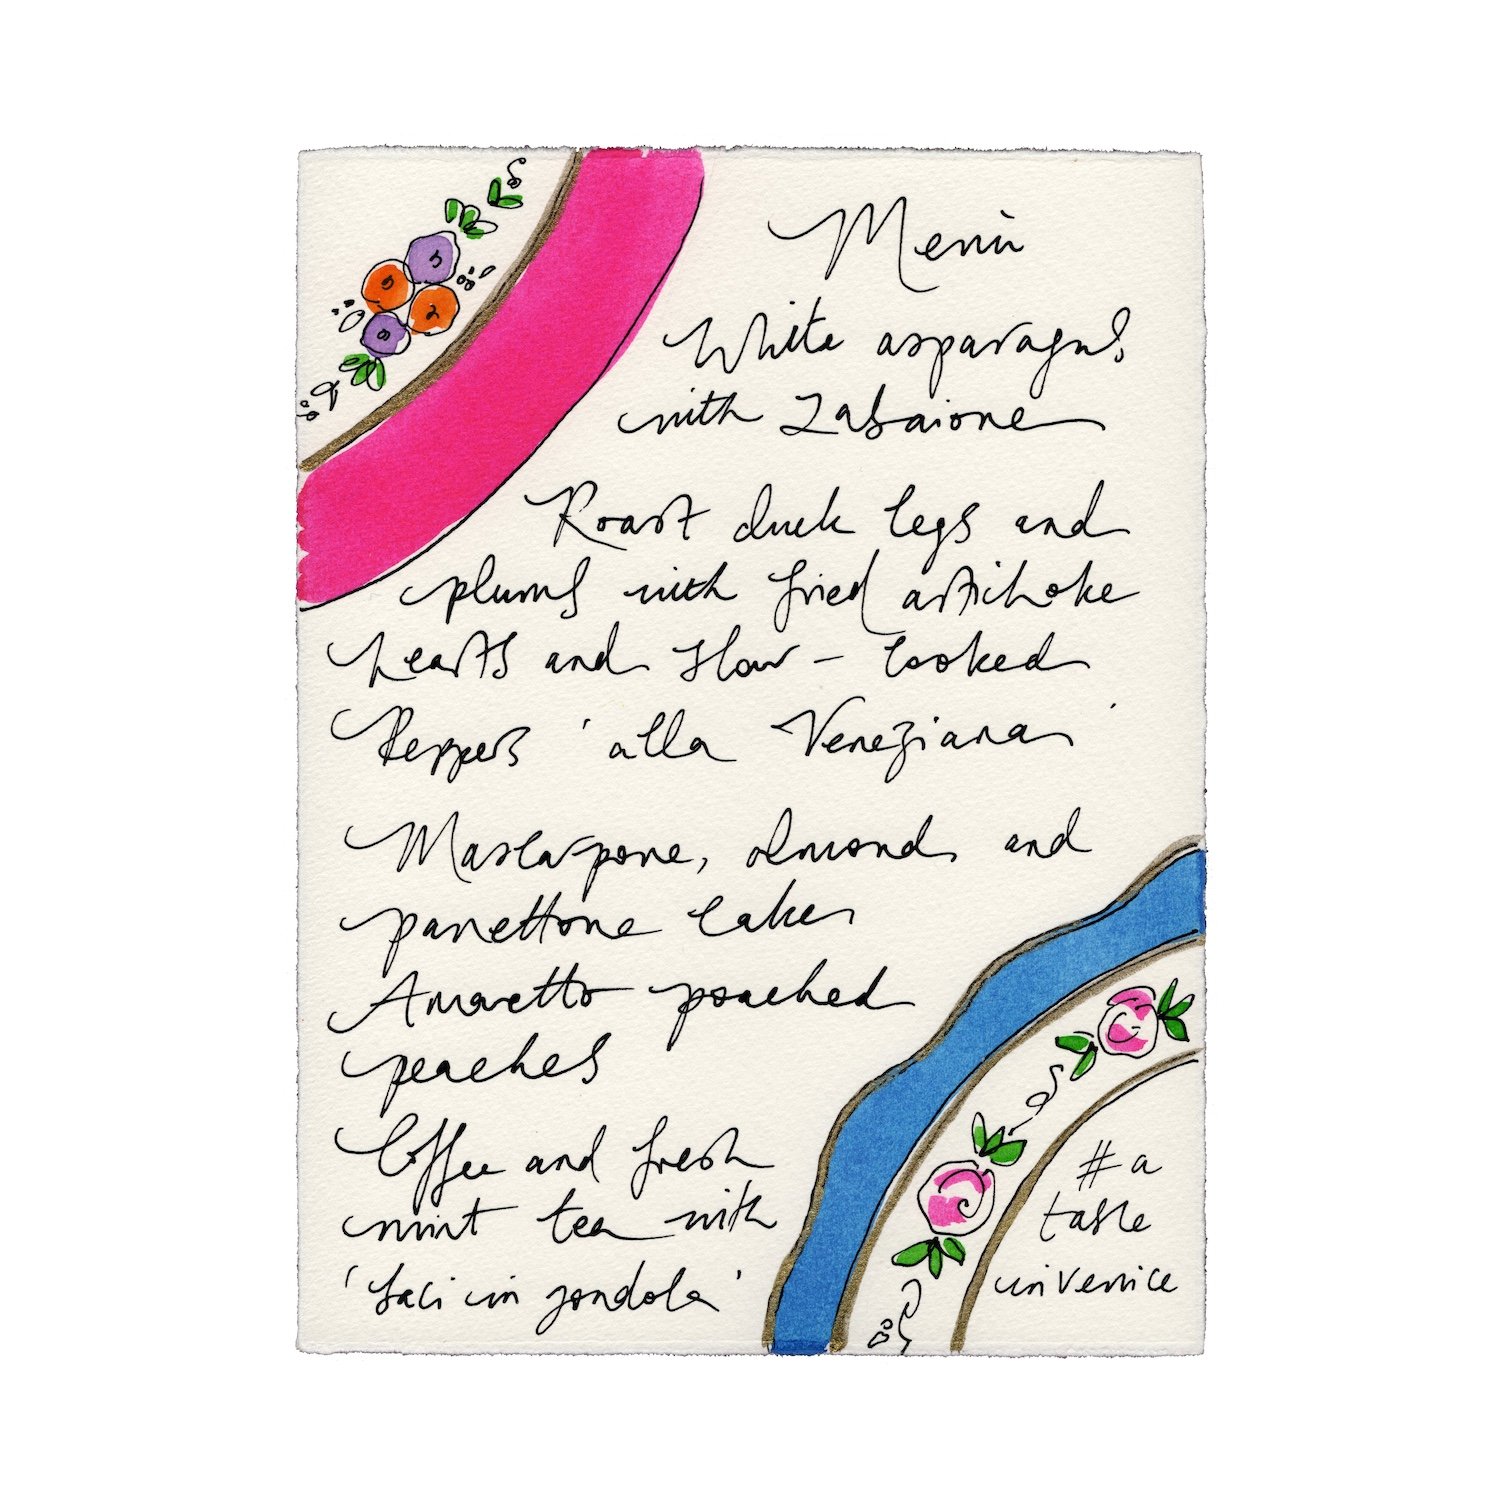 Menù
White asparagus
with Zabaione
Roast duck legs and
plums with fried artichoke
hearts and slow-cooked
Peppers 'alla Veneziana'
Mascarpone, almond and
panettone cake
Amaretto poached
peaches
Coffee and fresh
mint tea with
'baci in gondola'
#a
taste
in venice